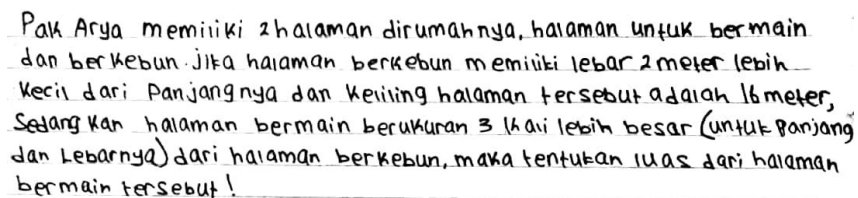 Pak Arya memiliki 2 halaman dirumahnya, halaman untuk bermain
dan berkebun. Jika halaman berkebun memiliki lebar 2 meter lebih
kecil dari panjangnya dan keliling halaman tersebut adalah 16 meter,
Sedangkan halaman bermain berukuran 3 kali lebih besar (untuk panjang
dan Lebarnya) dari halaman berkebun, maka tentukan luas dari halaman
bermain tersebut!